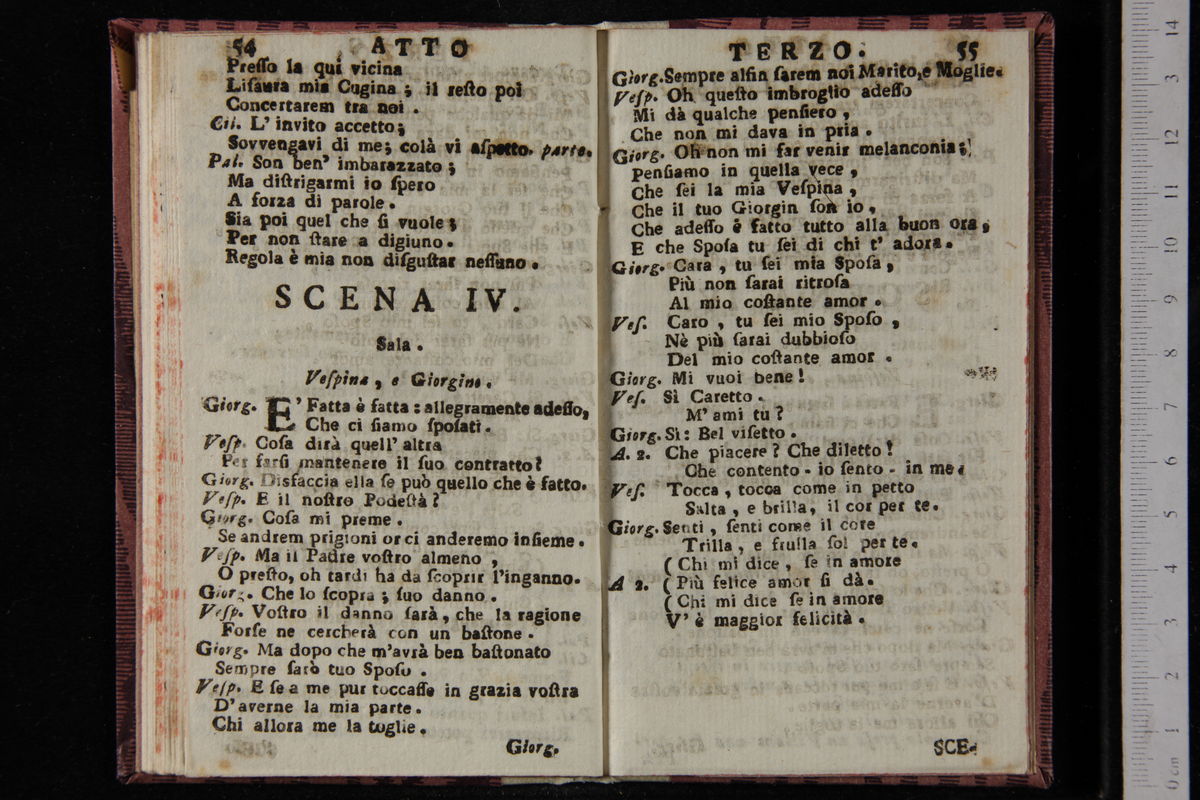 54 ATTO
Preſſo la quì vicina
Liſaura mia Cugina ; il reſto poi
Concertarem tra noi .
Cil. L' invito accetto;
Sovvengavi di me; colà vi aſpetto. parte.
Pal. Son ben' imbarazzato ;
Ma diſtrigarmi io ſpero
A forza di parole .
Sia poi quel che ſi vuole ;
Per non ſtare a digiuno .
Regola è mia non diſguſtar neſſuno .
SCENA IV.
Sala .
Veſpina , e Giorgino .
Giorg. E' Fatta è fatta : allegramente adeſſo,
Che ci ſiamo ſpoſati .
Veſp. Coſa dirà quell' altra
Per farſi mantenere il ſuo contratto?
Giorg. Disfaccia ella ſe può quello che è fatto.
Veſp. E il noſtro Podeſtà ?
Giorg. Coſa mi preme .
Se andrem prigioni or ci anderemo inſieme .
Veſp. Ma il Padre voſtro almeno ,
O preſto, oh tardi ha da ſcoprir l'inganno.
Giorg. Che lo ſcopra ; ſuo danno .
Veſp. Voſtro il danno ſarà , che la ragione
Forſe ne cercherà con un baſtone .
Giorg. Ma dopo che m'avrà ben baſtonato
Sempre ſarò tuo Spoſo .
Veſp. E ſe a me pur toccaſſe in grazia voſtra
D' averne la mia parte .
Chi allora me la toglie .
Giorg.
TERZO. 55
Giorg. Sempre alfin ſarem noi Marito, e Moglie.
Veſp. Oh queſto imbroglio adeſſo
Mi dà qualche penſiero ,
Che non mi dava in pria .
Giorg. Oh non mi far venir melanconia ;
penſiamo in quella vece ,
Che ſei la mia Veſpina ,
Che il tuo Giorgin ſon io ,
Che adeſſo è fatto tutto alla buon ora ,
E che Spoſa tu ſei di chi t' adora .
Giorg. Cara , tu ſei mia Spoſa ,
Più non ſarai ritroſa
Al mio coſtante amor .
Veſ. Caro , tu ſei mio Spoſo ,
Nè più ſarai dubbioſo
Del mio coſtante amor .
Giorg. Mi vuoi bene !
Veſ. Sì Caretto .
M' ami tu ?
Giorg. Sì : Bel viſetto .
A. 2. Che piacere ? Che diletto !
Che contento - io ſento - in me .
Veſ. Tocca , tocca come in petto
Salta , e brilla, il cor per te .
Giorg. Senti , ſenti come il core
Trilla , e frulla ſol per te .
( Chi mi dice , ſe in amore
A 2. ( Più felice amor ſi dà .
( Chi mi dice ſe in amore
V' è maggior felicità .
SCE-
0 cm 1 2 3 4 5 6 7 8 9 10 11 12 13 14